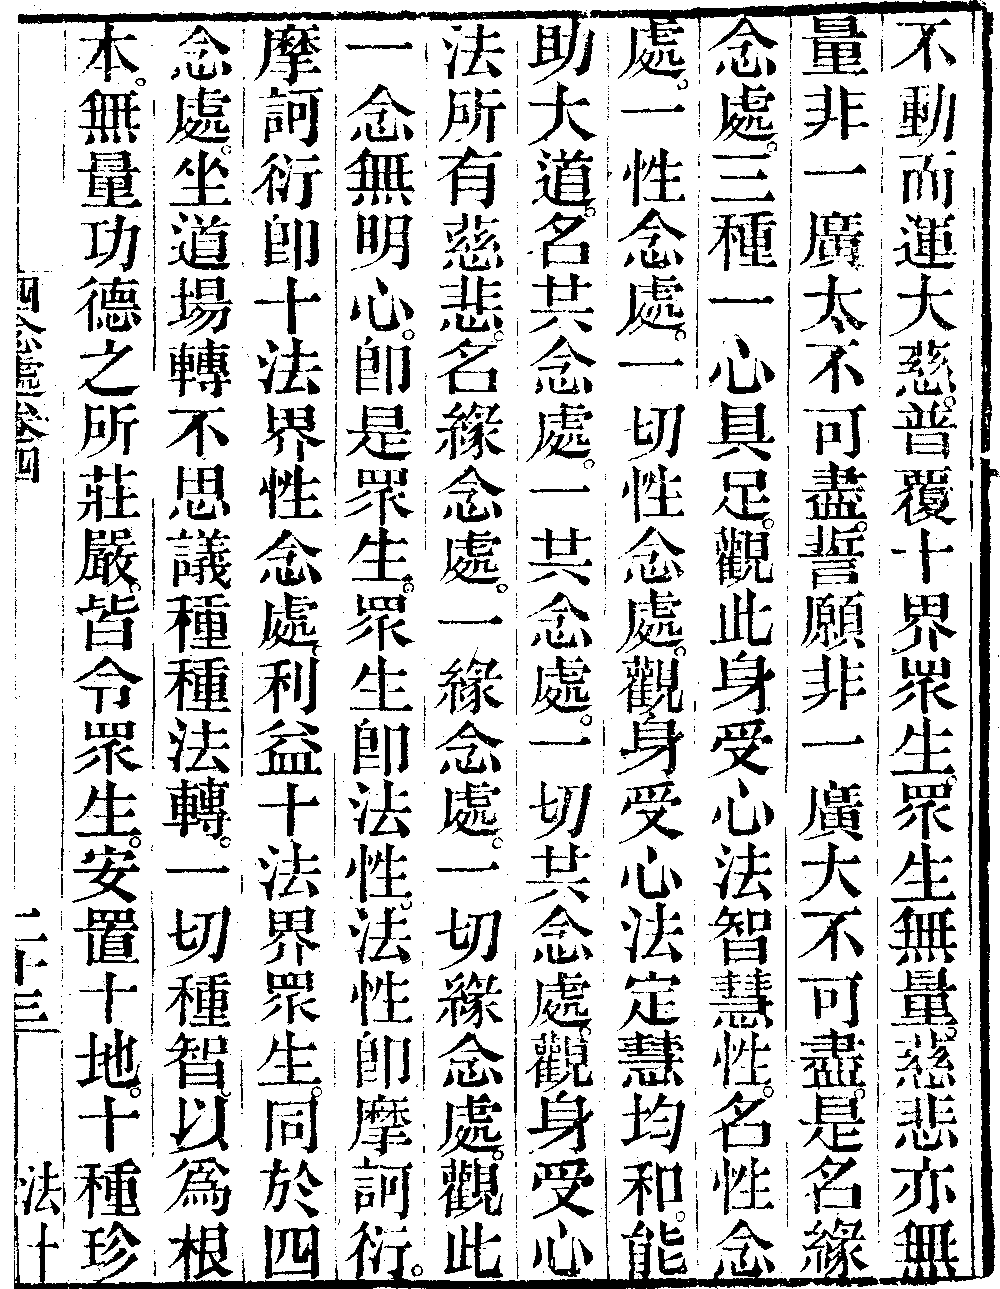 不動而運大慈。普覆十界眾生。眾生無量。慈悲亦無
量非一廣大。不可盡。誓願非一廣大不可盡。是名緣
念處。三種一心具足。觀此身受心法智慧性。名性念
處。一性念處。一切性念處。觀身受心法定慧均和。能
助大道。名共念處。一共念處。一切共念處。觀身受心
法所有慈悲。名緣念處。一緣念處。一切緣念處。觀此
一念無明心。即是眾生。眾生即法性。法性即摩訶衍。
摩訶衍即十法界性念處。利益十法界眾生。同於四
念處。坐道場轉不思議種種法轉。一切種智。以為根
本。無量功德之所莊嚴。皆令眾生。安置十地。十種珍
四念處卷四 二十三 法十